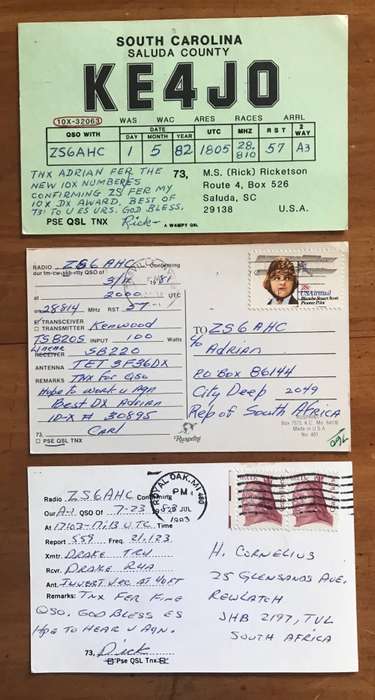 SOUTH CAROLINA
SALUDA COUNTY
KE4JO
10X-32063 WAS WAC ARES RACES ARRL
QSO WITH DATE UTC MHZ R S T 2 WAY
DAY MONTH YEAR
ZS6AHC 1 5 82 1805 28.810 57 A3
TNX ADRIAN FER THE
NEW 10X NUMBERES
CONFIRMING ZS FER MY
10X DX AWARD. BEST OF
73! TO U ES URS. GOD BLESS.
PSE QSL TNX Rick-
73, M.S. (Rick) Ricketson
Route 4, Box 526
Saluda, SC
29138 U.S.A.
A WØMPY QSL
RADIO ZS6AHC Confirming
our QSO of
3/4 81
at 2000 UTC
on 28814 MHz RST 57
TRANSCEIVER
TRANSMITTER Kenwood
TS820S INPUT 100 Watts
Linear
RECEIVER SB220
ANTENNA TET 3F36DX
REMARKS TNX for QSO
Hope to work u Agn
Best DX Adrian
10-X # 30895
73, Carl
PSE QSL TNX
USAirmail
Blanche Stuart Scott
Pioneer Pilot
TO ZS6AHC
% Adrian
PO BOX 86144
City Deep 2049
Rep of South Africa
Made in U.S.A.
No. 401
Radio ZS6AHC Confirming
Our A-1 QSO Of 7-23 1983
At 1703-1713 UTC Time
Report 559 Freq. 21.123
Xmtr. DRAKE TR4
Rcvr. DRAKE R4A
Ant. INVERT VEE AT 40FT
Remarks: TNX FER FINE
QSO. GOD BLESS ES
HOPE TO HEAR U AGN.
73, Dick
Pse QSL Tnx
ROYAL OAK, MI 480
PM
JUL
1983
H. CORNELIUS
25 GLENSANDS AVE.
REWLATCH
JHB 2197, TVL
SOUTH AFRICA